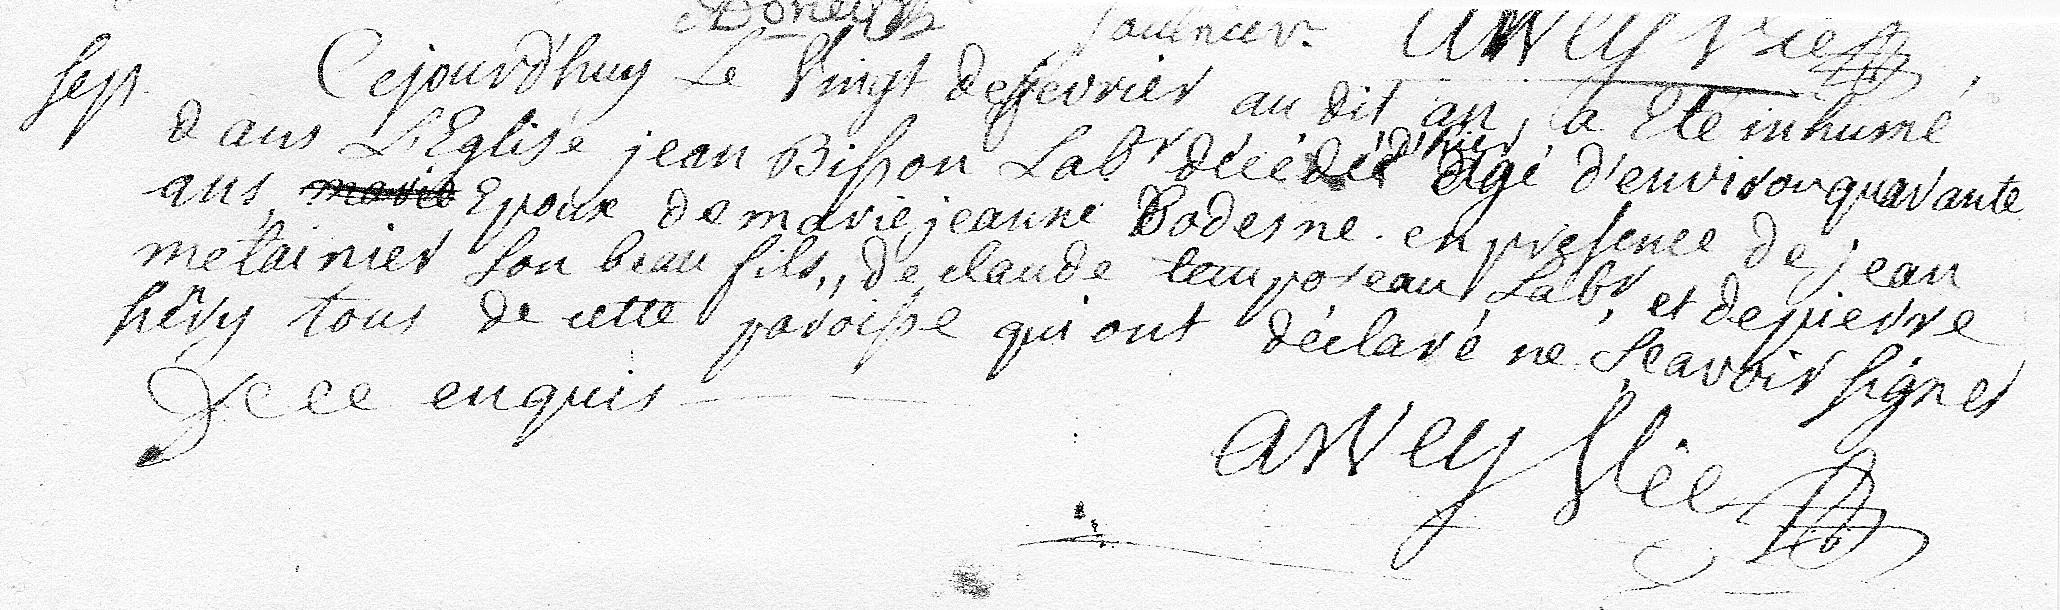 saulnier.
Sep. Cejourd'huy Le vingt defevrier au dit an, a Eté inhumé
dans L'Eglise jean Bisson Labr décédé d'hier agé d'environ quarante
ans, Epoux de marie jeanne Bodesne. en presence de jean
metainier son beau fils, de claude temporeau Labr, et de pierre
hery tous de cette paroisse qui ont déclaré ne Scavoir signer
De ce enquis